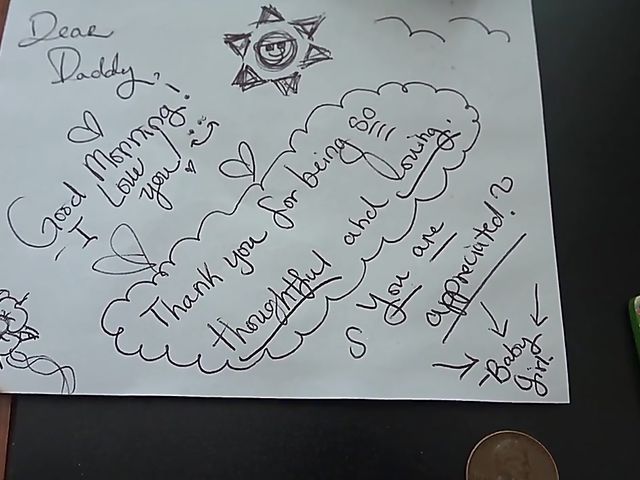 Dear
Daddy,
Good Morning!
-I Love
you!
Thank you for being so
thoughtful and loving.
You are
appreciated?
-Baby
girl